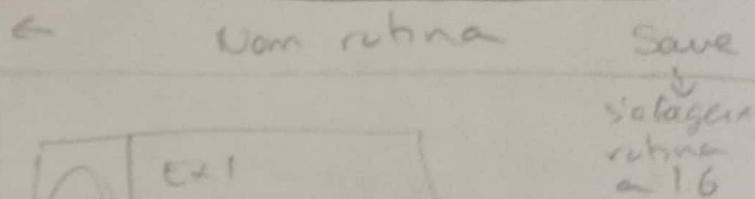 ← Nom rutina Save
↓
s'afageix
rutina
a 1.6
Ex 1